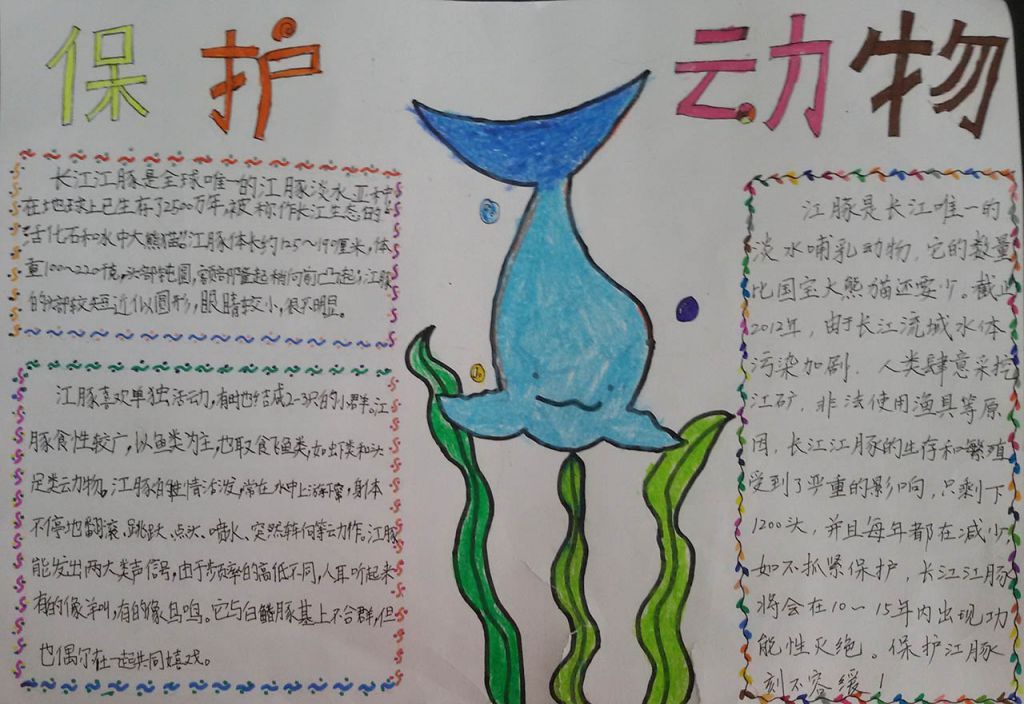 保护 动物
长江江豚是全球唯一的江豚淡水亚种
在地球上已生存了2500万年,被称作长江生态的
活化石和水中大熊猫。江豚体长约125~190厘米,体
重100~220千克,头部钝圆,额部隆起稍向前凸起;江豚
的吻部较短近似圆形,眼睛较小,很不明显。
江豚喜欢单独活动,有时也结成2-3只的小群。江
豚食性较广,以鱼类为主,也取食飞鱼类,如虾类和头
足类动物。江豚的性情活泼,常在水中上游下窜,身体
不停地翻滚、跳跃、点头、喷水、突然转向等动作。江豚
能发出两大类声信号,由于频率的高低不同,人耳听起来
有的像羊叫,有的像鸟鸣。它与白鳍豚基上不合群,但
也偶尔在一起共同嬉戏。
江豚是长江唯一的
淡水哺乳动物,它的数量
比国宝大熊猫还要少。截迫
2012年,由于长江流域水体
污染加剧,人类肆意采挖
江矿,非法使用渔具等原
因,长江江豚的生存和繁殖
受到了严重的影响,只剩下
1200头,并且每年都在减少
如不抓紧保护,长江江豚
将会在10~15年内出现功
能性灭绝。保护江豚
刻不容缓!